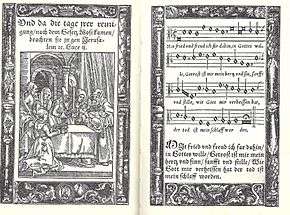 Und da die tage jrer reini-
gung/nach dem Gesetz Mosi kamen/
brachten sie jn gen Jerusa-
lem ꝛc. Luce ij.
Mit fried und freud ich far dahin, in Gottes wil-
le, Getrost ist mir mein hertz und sin, sanfft
und stille, Wie Gott mir verheissen hat,
der tod ist mein schlaff wor den.
Mit fried und freud ich far dahin/
in Gottes wille/ Getrost ist mir mein
hertz und sinn/ sanfft und stille/ Wie
Gott mir verheissen hat der tod ist
mein schlaff worden.